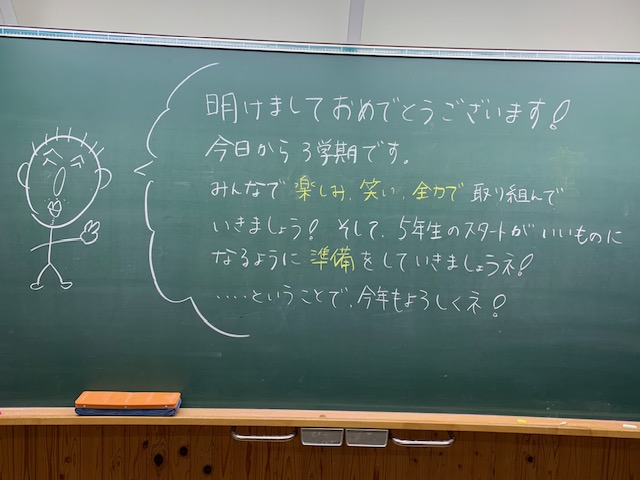 明けましておめでとうございます!
今日から3学期です。
みんなで楽しみ、笑い、全力で取り組んで
いきましょう!そして、5年生のスタートがいいものに
なるように準備をしていきましょうネ!
……ということで、今年もよろしくネ!